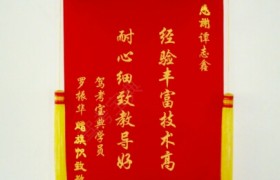 感谢谭志鑫
经验丰富技术高
耐心细致教导好
驾考宝典学员
罗振华